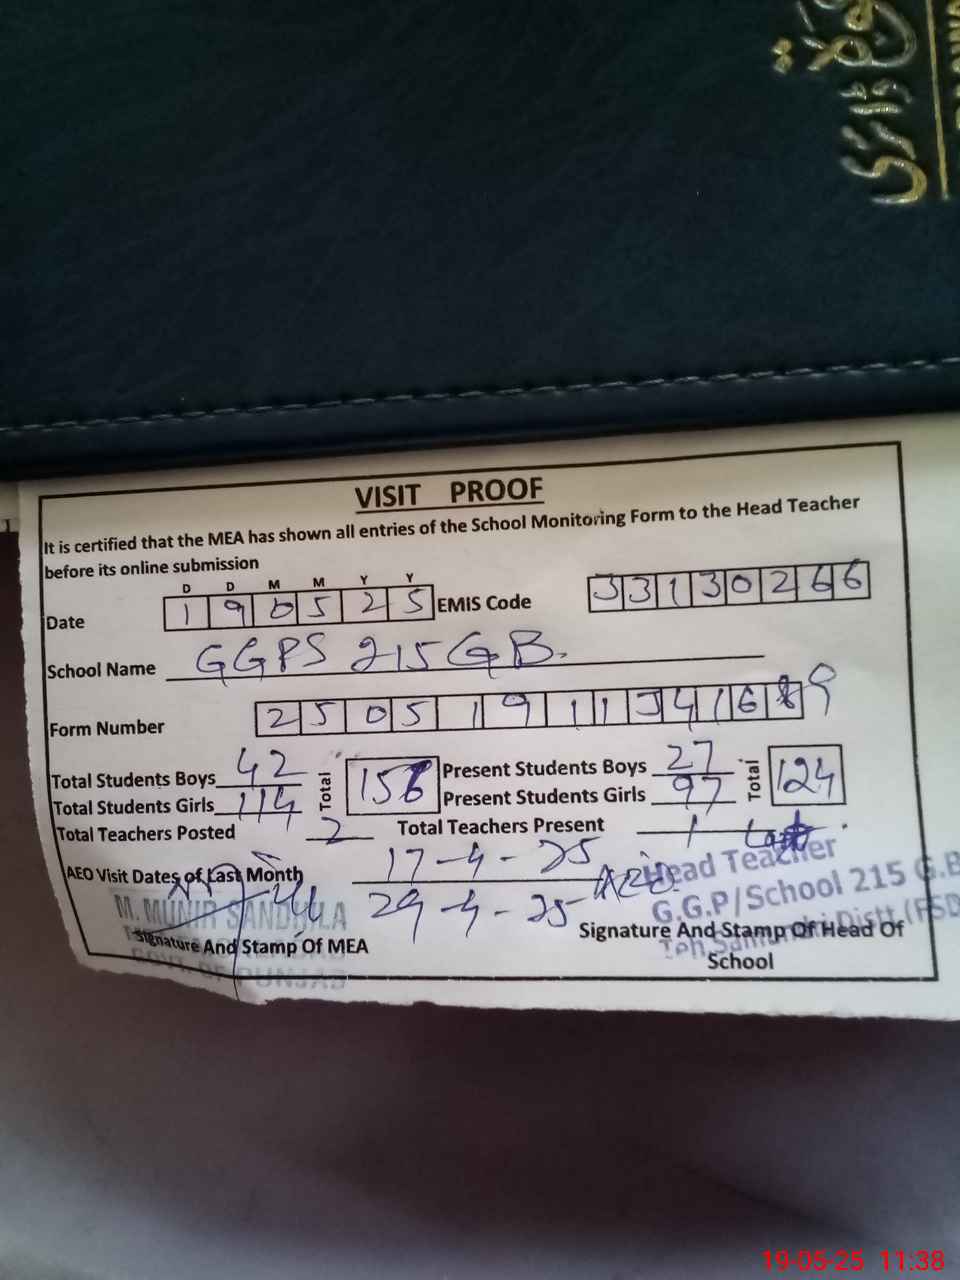 ڈائری
VISIT PROOF
It is certified that the MEA has shown all entries of the School Monitoring Form to the Head Teacher
before its online submission
D D M M Y Y
Date 1 9 0 5 2 5 EMIS Code 3 3 1 3 0 2 6 6
School Name GGPS 215 GB.
Form Number 2 5 0 5 1 9 1 1 3 4 1 6 9
Total Students Boys 42 Total 156 Present Students Boys 27 Total 124
Total Students Girls 114 Present Students Girls 97
Total Teachers Posted 2 Total Teachers Present 1
AEO Visit Dates of Last Month 17-4-25
29-4-25
Head Teacher
G.G.P/School 215 G.B
Distt (FSD
M. MUNIR SANDHILA
Signature And Stamp Of MEA
GOVT. OF PUNJAB
Signature And Stamp Of Head Of
School
19-05-25 11:38